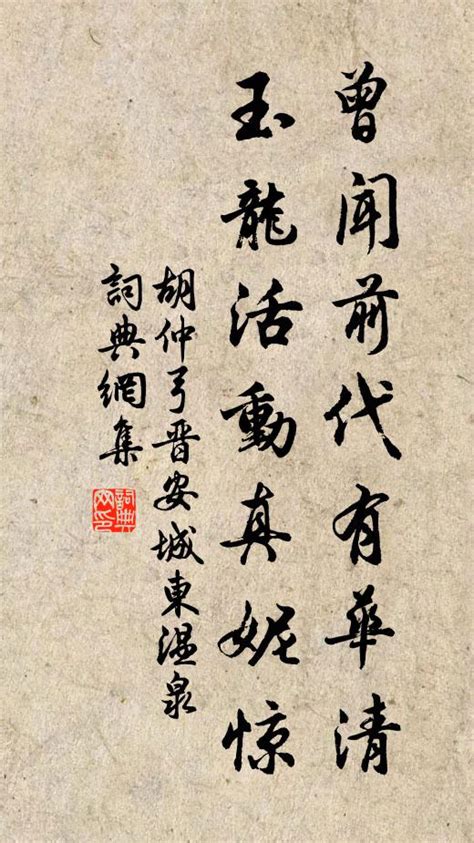 曾聞前代有華清
玉龍活動真妮惊
胡仲弓晋安城東温泉
詞典網集
詞典
网印